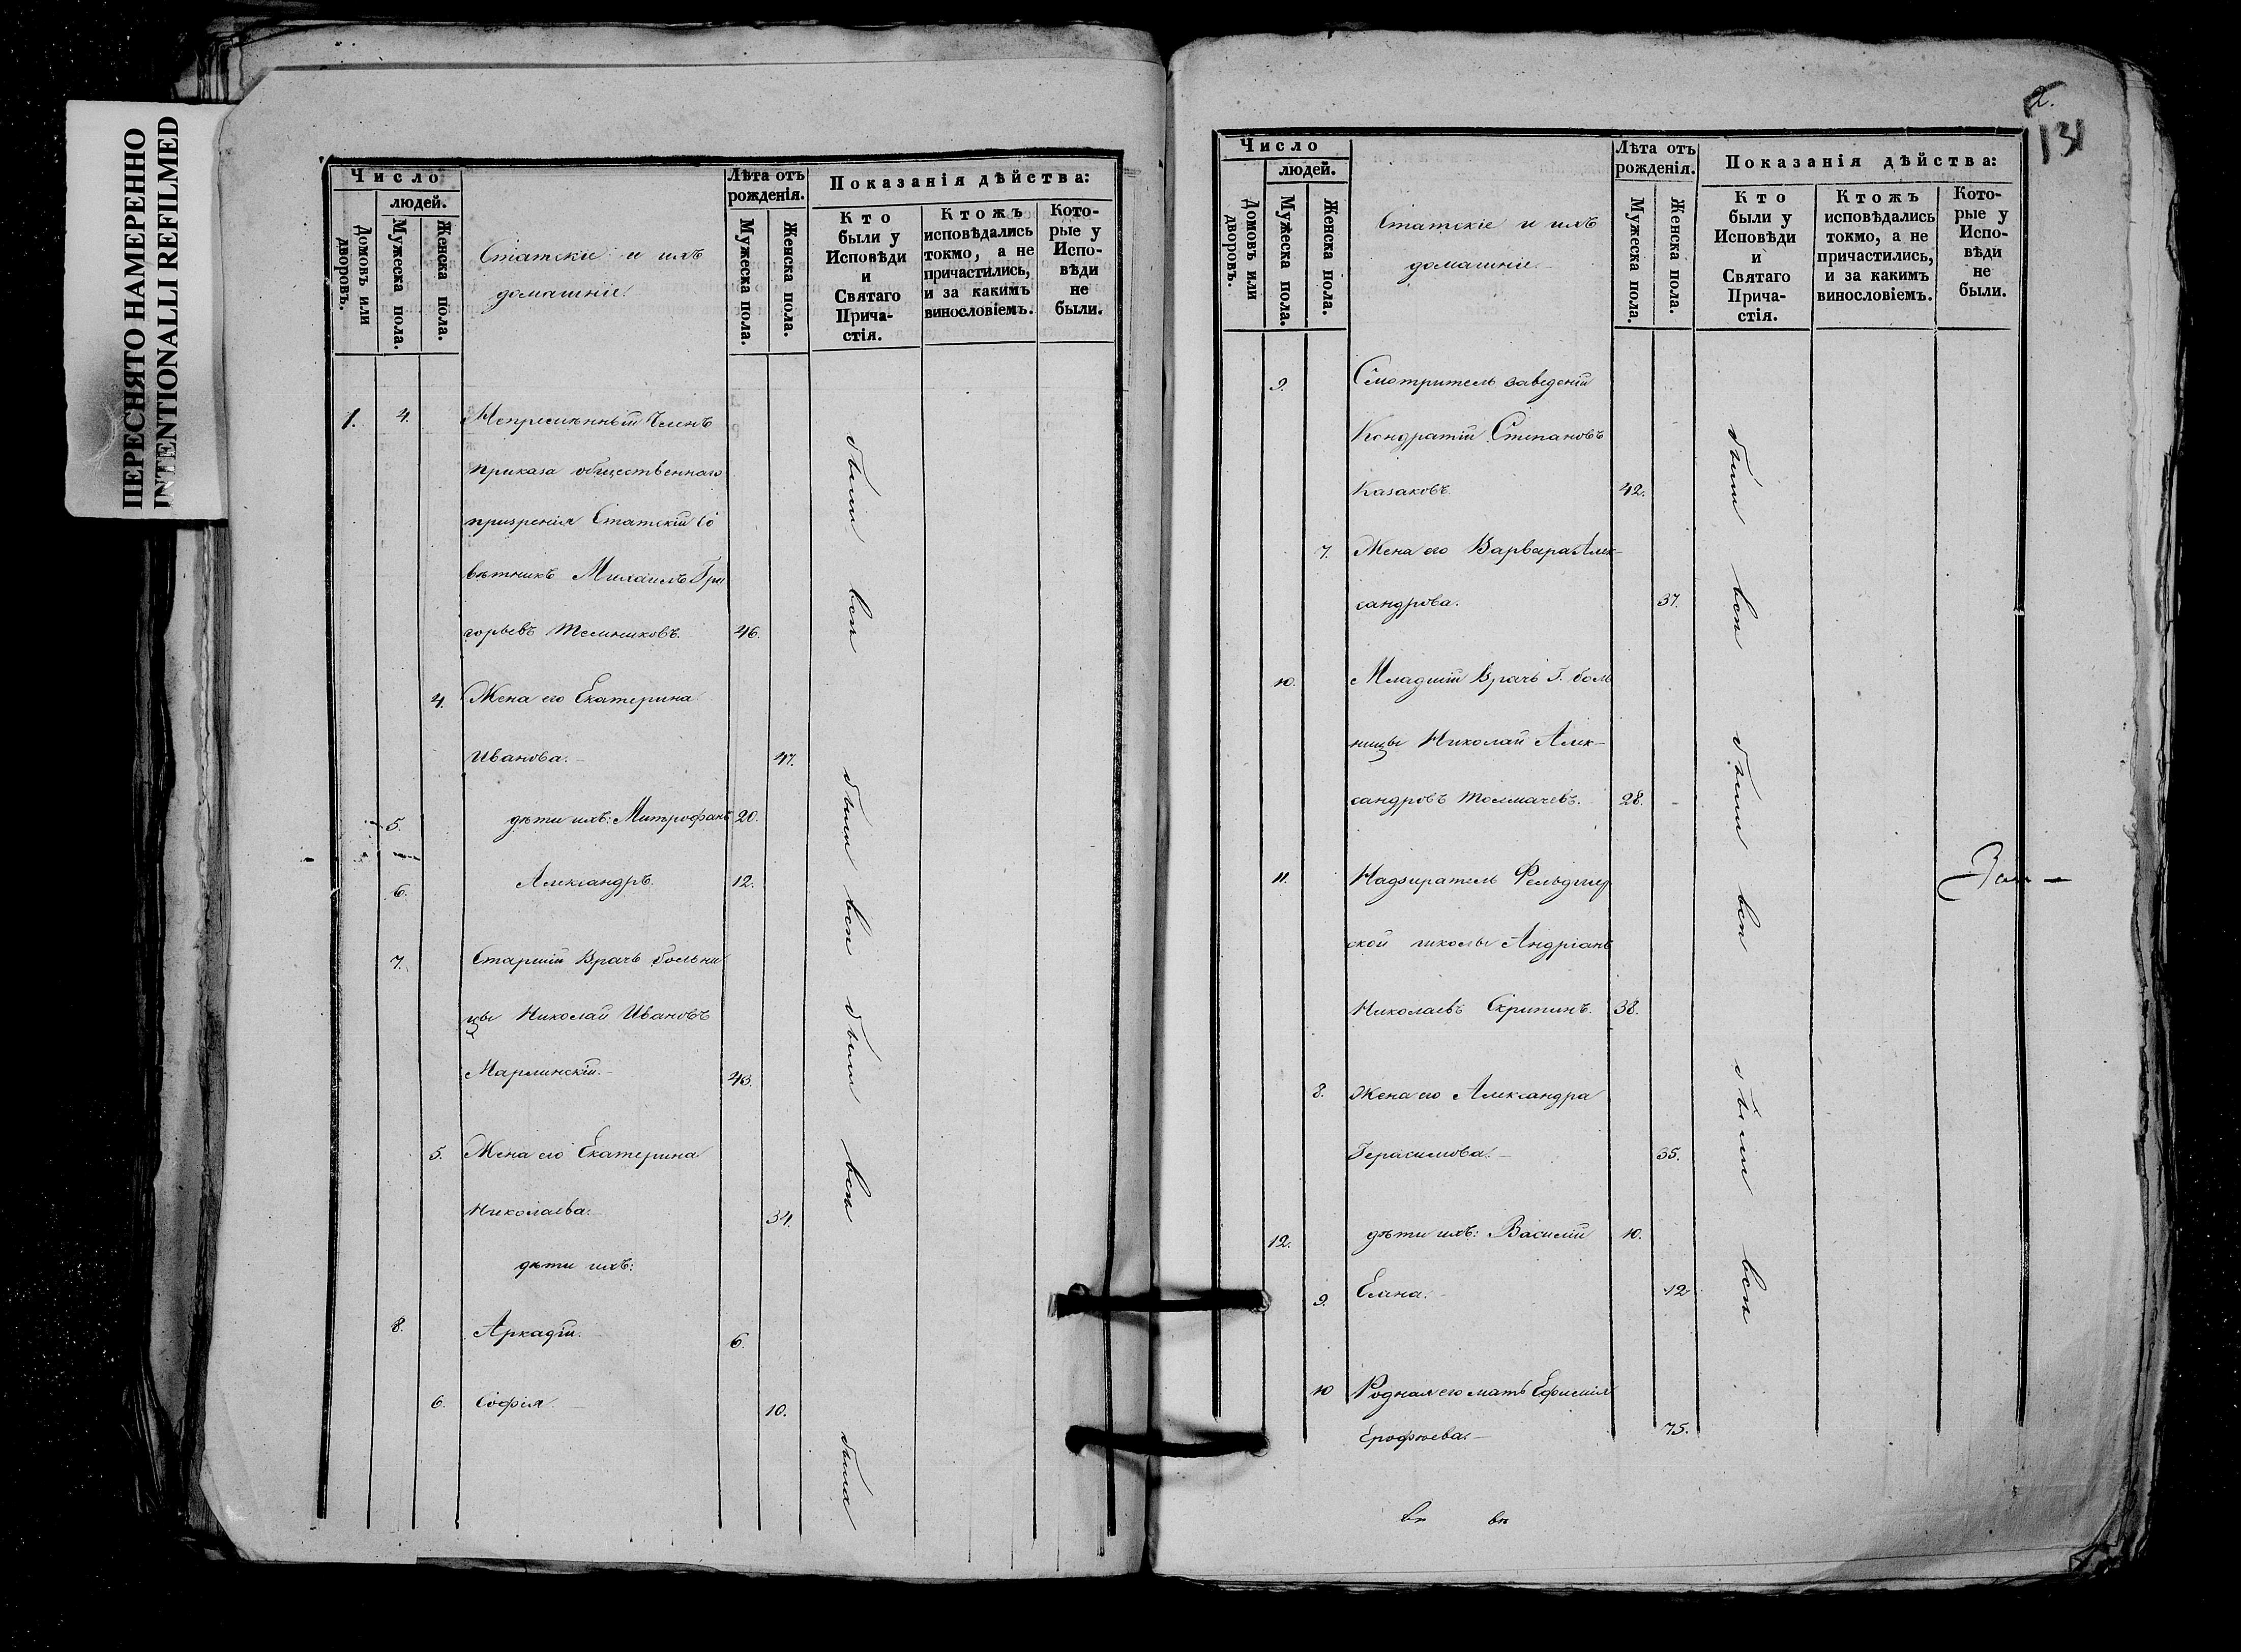 ПЕРЕСНЯТО НАМЕРЕННО
INTENTIONALLI REFILMED
Число
людей.
Домовъ или дворовъ.
Мужеска пола.
Женска пола.
Статскіе и ихъ
домашніе.
Лѣта отъ рожденія.
Мужеска пола.
Женска пола.
Показанія дѣйства:
Кто были у Исповѣди и Святаго Прича-стія.
Ктожъ исповѣдались токмо, а не причастились, и за какимъ винословіемъ.
Кото-рые у Испо-вѣди не были.
1. 4. Непремѣнный Членъ
приказа общественнаго
призренія Статскій Со
вѣтникъ Михаилъ Гри
горьевъ 46.
4. Жена его Екатерина
Иванова. 47.
5. дѣти ихъ: Митрофанъ 20.
6. Александръ. 12.
7. Старшій Врачъ больни
цы Николай Ивановъ
Марлинскій. 43.
5. Жена его Екатерина
Николаева. 34.
дѣти ихъ:
8. Аркадій. 6.
6. Софія. 10.
были всѣ
были всѣ
были всѣ
была
2.
131
Число
людей.
Домовъ или дворовъ.
Мужеска пола.
Женска пола.
Статскіе и ихъ
домашніе.
Лѣта отъ рожденія.
Мужеска пола.
Женска пола.
Показанія дѣйства:
Кто были у Исповѣди и Святаго Прича-стія.
Ктожъ исповѣдались токмо, а не причастились, и за какимъ винословіемъ.
Кото-рые у Испо-вѣди не были.
9. Смотритель заведеній
Кондратій Степановъ
Казаковъ. 42.
7. Жена его Варвара Алек-
сандрова. 37.
10. Младшій Врачъ Г. боль
ницы Николай Алек-
сандровъ Толмачевъ. 28.
11. Надзиратель Фельдшер
ской школы Андріанъ
Николаевъ Скрипинъ. 38.
8. Жена его Александра
Герасимова. 35.
12. дѣти ихъ: Василій 10.
9. Елена. 12
10 Родная его мать Ефимія
Ерофѣева. 75.
были всѣ
были всѣ
были всѣ